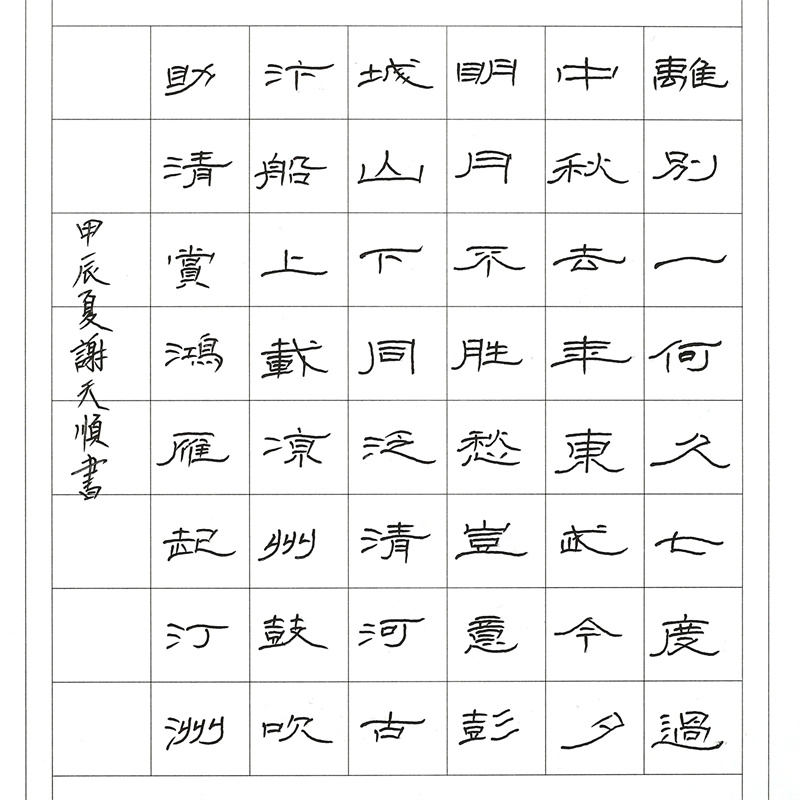 離別一何久七度過
中秋去年東武今夕
明月不胜愁豈意彭
城山下同泛清河古
汴船上載凉州鼓吹
助清賞鴻雁起汀洲
甲辰夏謝天順書